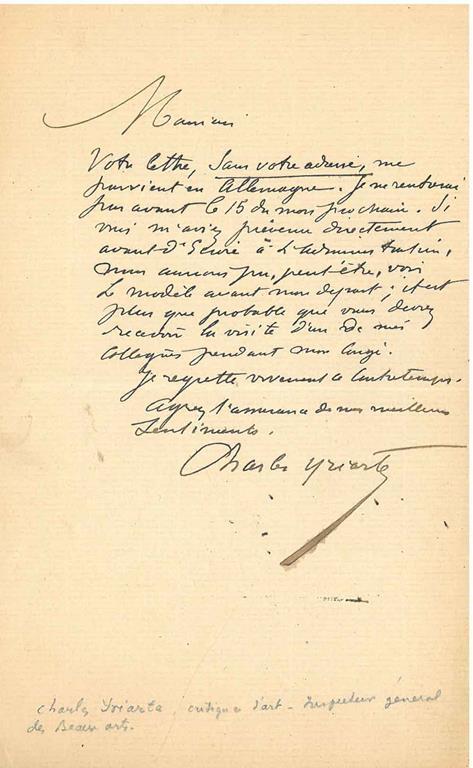 Monsieur
Votre lettre, sans votre adresse, me
parvient en Allemagne. Je ne rentrerai
pas avant le 15 du mois prochain. Si
vous m'aviez prévenu directement
avant d'écrire à l'administration,
nous aurions pu, peut-être, voir
le modèle avant mon départ ; il est
plus que probable que vous devrez
recevoir la visite d'un de mes
collègues pendant mon congé.
Je regrette vivement ce contretemps.
Agréez l'assurance de mes meilleurs
sentiments.
Charles Yriarte
Charles Yriarte, critique d'art - Inspecteur général
des Beaux arts.